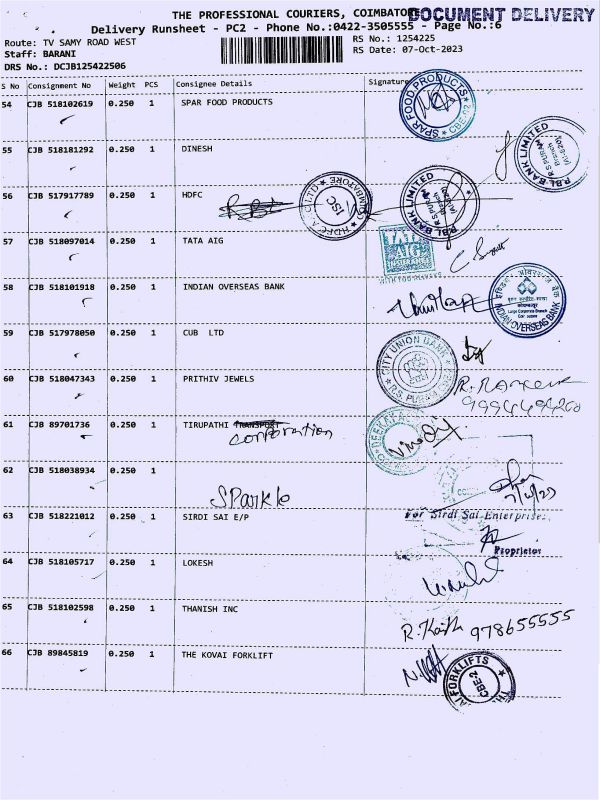 THE PROFESSIONAL COURIERS, COIMBATOR
DOCUMENT DELIVERY
Delivery Runsheet - PC2 - Phone No.:0422-3505555 - Page No.:6
Route: TV SAMY ROAD WEST
RS No.: 1254225
Staff: BARANI
RS Date: 07-Oct-2023
DRS No.: DCJB125422506
S No Consignment No Weight PCS Consignee Details Signature
54 CJB 518102619 0.250 1 SPAR FOOD PRODUCTS
SPAR FOOD PRODUCTS CBE-02
55 CJB 518181292 0.250 1 DINESH
RBL BANK LIMITED
56 CJB 517917789 0.250 1 HDFC
COIMBATORE ISC
RBL BANK LIMITED
57 CJB 518097014 0.250 1 TATA AIG
TATA AIG
58 CJB 518101918 0.250 1 INDIAN OVERSEAS BANK
INDIAN OVERSEAS BANK
59 CJB 517978050 0.250 1 CUB LTD
CITY UNION BANK
60 CJB 518047343 0.250 1 PRITHIV JEWELS
61 CJB 89701736 0.250 1 TIRUPATHI TRANSPORT
corporation
62 CJB 518038934 0.250 1
Sparkle
63 CJB 518221012 0.250 1 SIRDI SAI E/P
For Sirdi Sai Enterprises
Proprietor
64 CJB 518105717 0.250 1 LOKESH
65 CJB 518102598 0.250 1 THANISH INC
978655555
66 CJB 89845819 0.250 1 THE KOVAI FORKLIFT
FORKLIFTS CBE-2